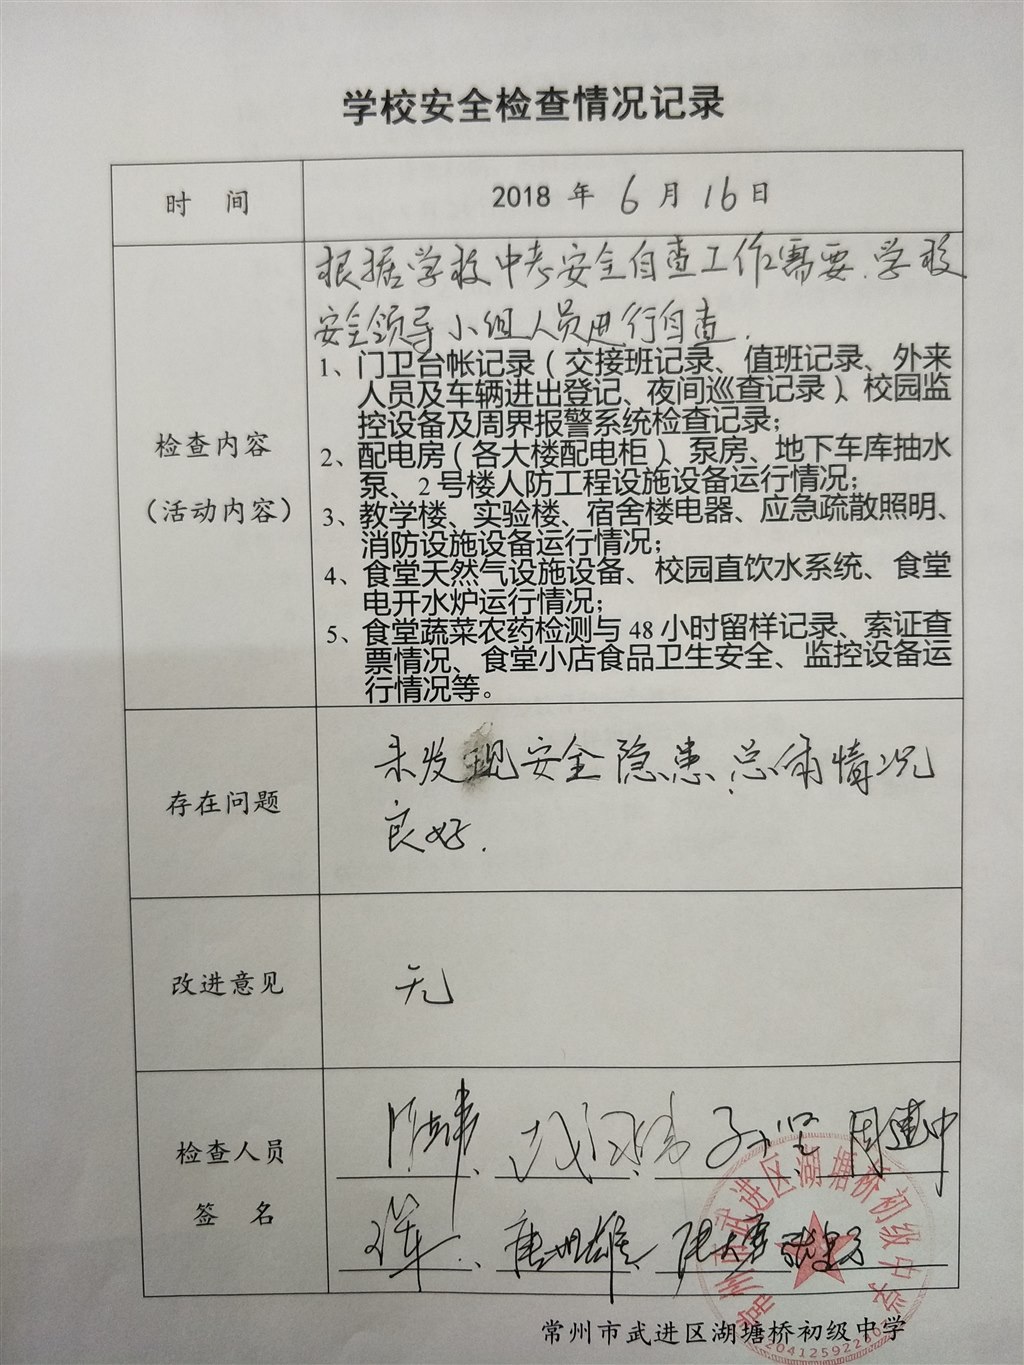 学校安全检查情况记录
时 间
2018 年 6 月 16 日
根据学校中考安全自查工作需要.学校
安全领导小组人员进行自查.
1、门卫台帐记录（交接班记录、值班记录、外来
人员及车辆进出登记、夜间巡查记录）、校园监
控设备及周界报警系统检查记录；
2、配电房（各大楼配电柜）、泵房、地下车库抽水
泵、2 号楼人防工程设施设备运行情况；
3、教学楼、实验楼、宿舍楼电器、应急疏散照明、
消防设施设备运行情况；
4、食堂天然气设施设备、校园直饮水系统、食堂
电开水炉运行情况；
5、食堂蔬菜农药检测与 48 小时留样记录、索证查
票情况、食堂小店食品卫生安全、监控设备运
行情况等。
检查内容
（活动内容）
存在问题
未发现安全隐患.总体情况
良好.
改进意见
无
检查人员
签 名
周建中
常州市武进区湖塘桥初级中学
常州市武进区湖塘桥初级中学